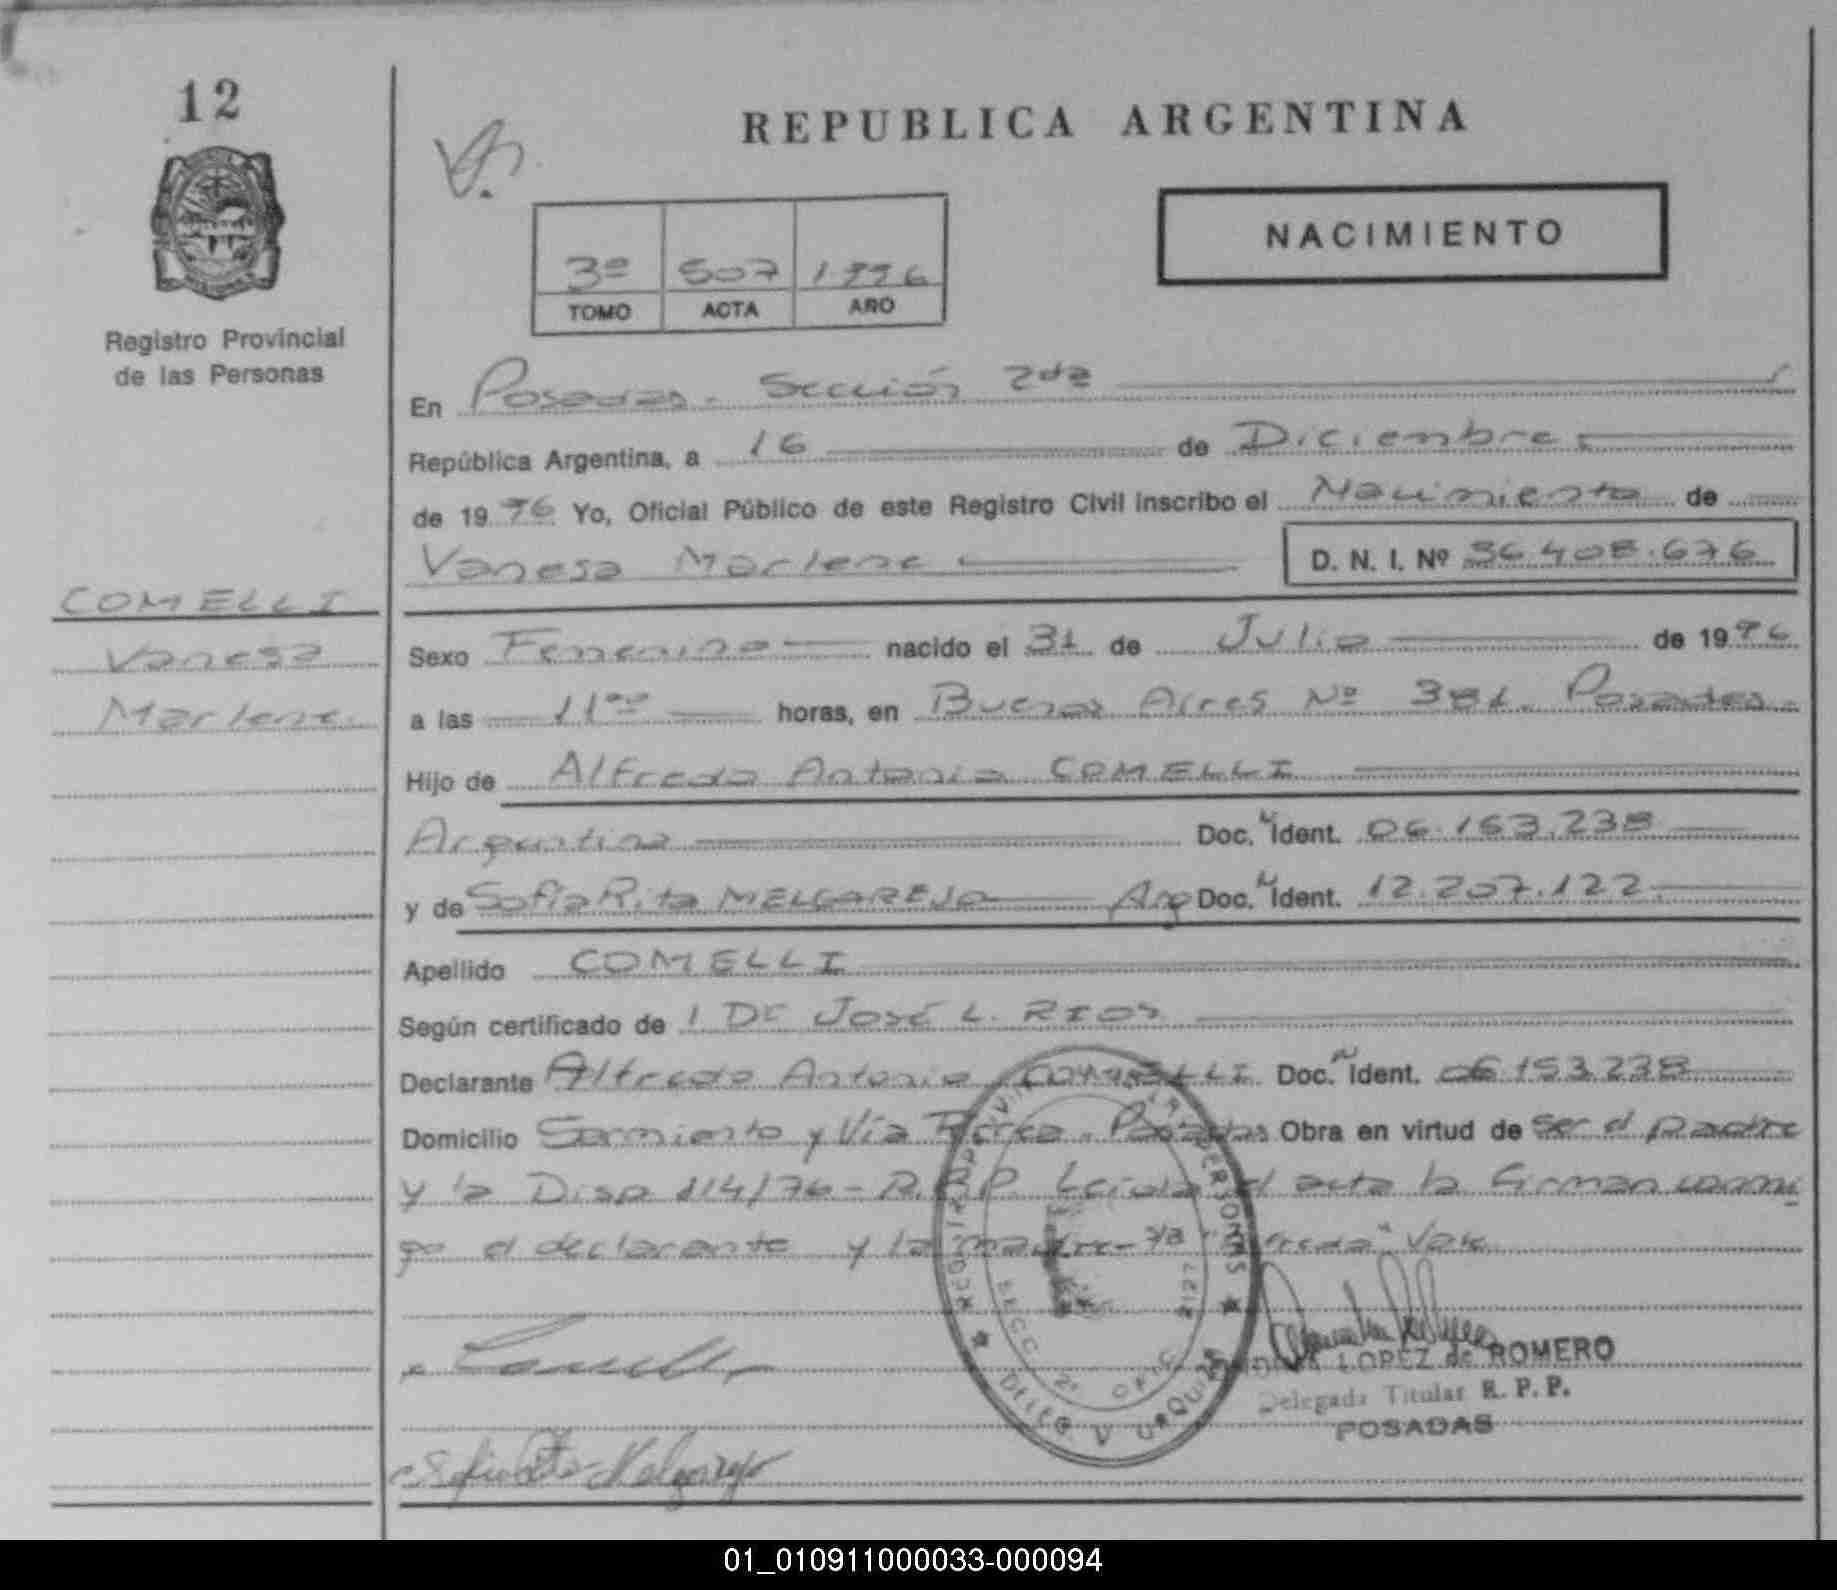 12
REPUBLICA ARGENTINA
NACIMIENTO
3º 507 1.996
TOMO ACTA AÑO
Registro Provincial
de las Personas
En Posadas. Sección 2da
República Argentina, a 16 de Diciembre
de 1996 Yo, Oficial Público de este Registro Civil inscribo el Nacimiento de
Vanesa Marlene D. N. I. Nº 36.408.676
COMELLI
Vanesa
Marlene
Sexo Femenino nacido el 31 de Julio de 1996
a las 11ºº horas, en Buenos Aires Nº 381. Posadas.
Hijo de Alfredo Antonio COMELLI
Argentino Doc. Ident. 06.153.238
y de Sofía Rita MELGAREJO Arg Doc. Ident. 12.207.122
Apellido COMELLI
Según certificado de 1 Dr José L. RIOS
Declarante Alfredo Antonio COMELLI Doc. Ident. 06153238
Domicilio Sarmiento y Vía Férrea. Posadas Obra en virtud de ser el padre
y la Disp 114/96 - R.P.P. Leida el acta la firman conmi
go el declarante y la madre- Vale
REG. PROVINCIAL DE LAS PERSONAS
SECC. 2ª
LOPEZ de ROMERO
Delegada Titular R. P. P.
POSADAS
01_010911000033-000094